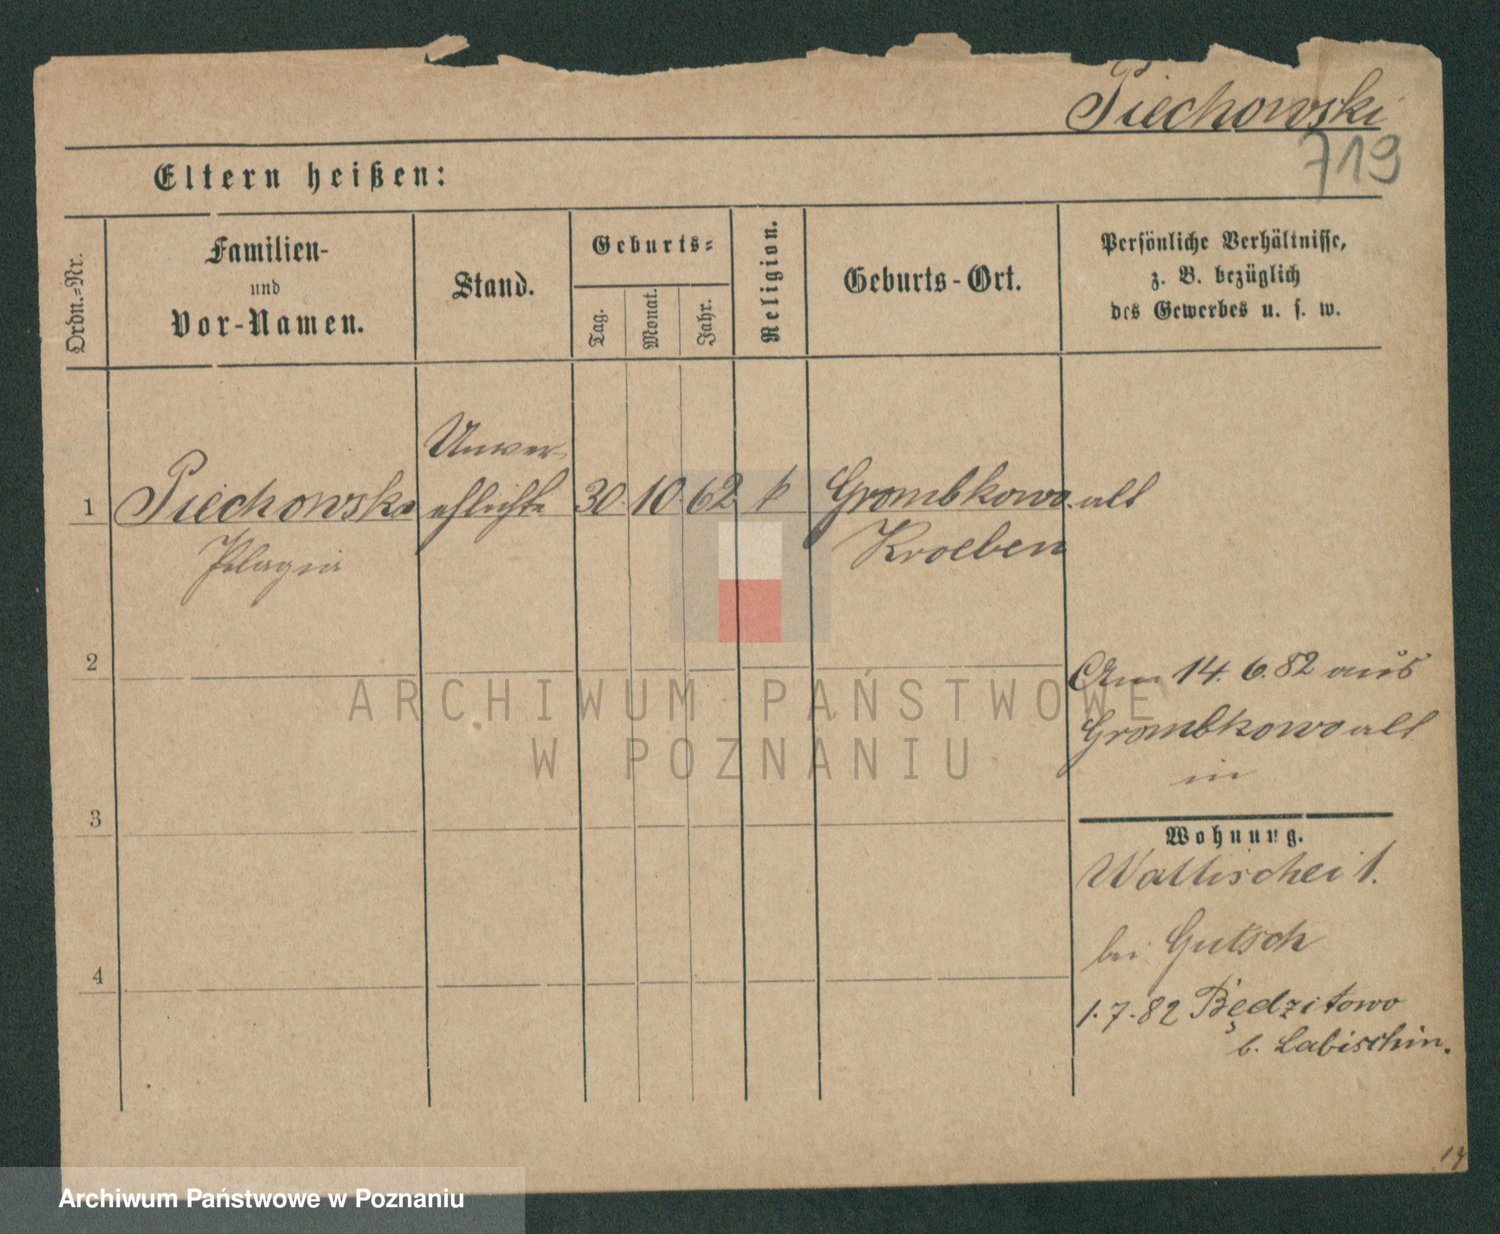 Piechowski
719
Eltern heißen:
Ordn.-Nr.
Familien-
und
Vor-Namen.
Stand.
Geburts-
Tag.
Monat.
Jahr.
Religion.
Geburts-Ort.
Persönliche Verhältnisse,
z. B. bezüglich
des Gewerbes u. s. w.
Unver-
1 Piechowska ehlichte 30. 10. 62 k Grombkowo alt
Pelagia Kroeben
2
Am 14. 6. 82 aus
Grombkowo alt
in
3
Wohnung.
Wallischei 1.
bei Gutsch
4
1. 7. 82 Będzitowo
b. Labischin.
ARCHIWUM PAŃSTWOWE
W POZNANIU
Archiwum Państwowe w Poznaniu